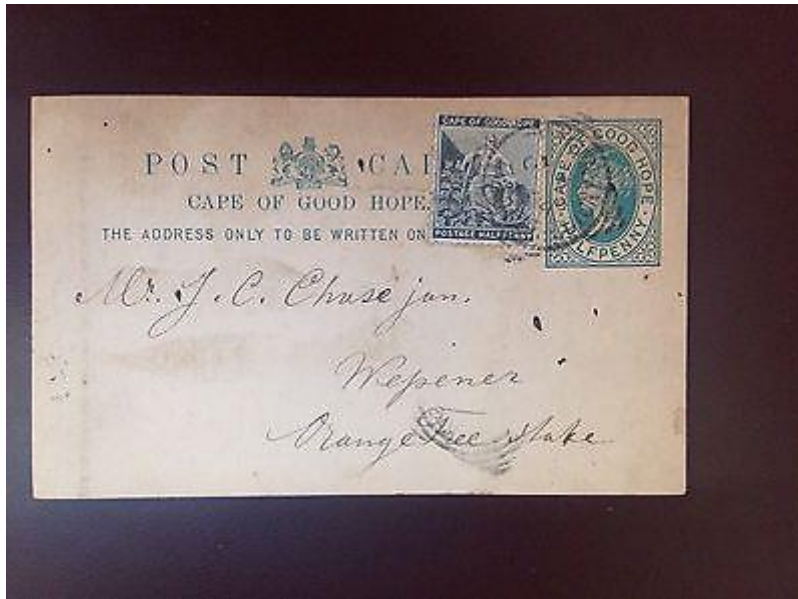 POST CA
CAPE OF GOOD HOPE.
THE ADDRESS ONLY TO BE WRITTEN ON
CAPE OF GOOD HOPE
POSTAGE HALFPENNY
CAPE OF GOOD HOPE
HALFPENNY
Mr. J. C. Chase jun.
Wepener
Orange Free State